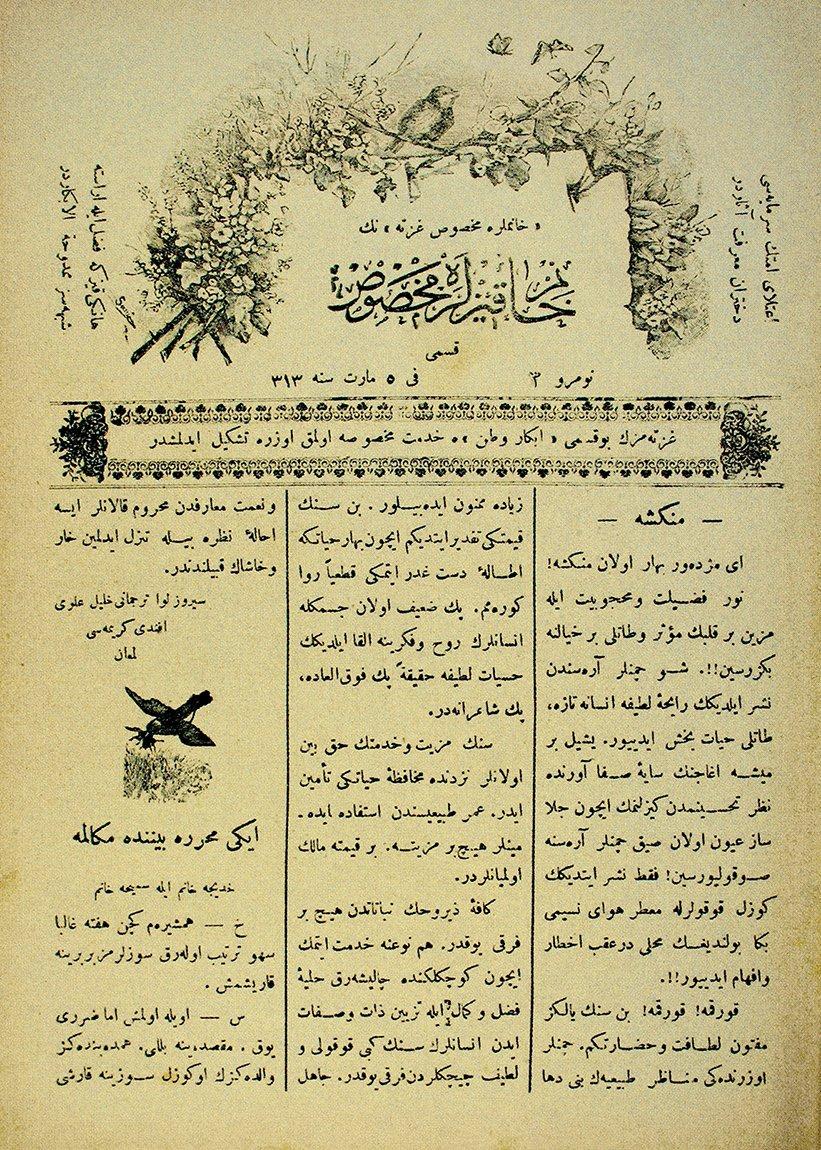 « خانملره مخصوص غزته » نك
خانم قیزلره مخصوص
قسمی
نومرو ٣
فی ٥ مارت سنه ٣١٣
اعتلای امتك سرمایه‌سی
دختران معرفت آثاردر
هانكی قیز كه فضل ایله آراسته
شبهه‌سز ممدوحة الابكاردر
غزته‌مزك بو قسمی « ابكار وطن » ه خدمت مخصوصه اولمق اوزره تشكیل ایدلمشدر
— منكشه —
ای مژده‌ور بهار اولان منكشه!
نور فضیلت ومحجوبیت ایله
مزین بر قلبك مؤثر وطاتلی بر خیالنه
بكزرسین!!. شو چمنلر آره‌سندن
نشر ایلدیكك رایحهٔ لطیفه انسانه تازه،
طاتلی حیات بخش ایدییور. یشیل بر
میشه اغاجنك سایهٔ صفا آورنده
نظر تحسینمدن كیزلنمك ایچون جلا
ساز عیون اولان صیق چمنلر آره‌سنه
صوقولیورسین! فقط نشر ایتدیكك
كوزل قوقولرله معطر هوای نسیمی
بكا بولندیغك محلی درعقب اخطار
وافهام ایدییور!!.
قورقه! قورقه! بن سنك یالكز
مفتون لطافت وحضارتكم. چمنلر
اوزرنده‌كی مناظر طبیعیه‌ك بنی دها
زیاده ممنون ایده‌بیلور. بن سنك
قیمتكی تقدیر ایتدیكم ایچون بهار حیاتكه
اطالهٔ دست غدر ایتمكی قطعیاً روا
كوره‌مم. پك ضعیف اولان جسمكله
انسانلرك روح وفكرینه القا ایلدیكك
حسیات لطیفه حقیقةً پك فوق العاده،
پك شاعرانه‌در.
سنك مزیت وخدمتك حق بین
اولانلر نزدنده محافظهٔ حیاتكی تأمین
ایدر. عمر طبیعیسندن استفاده ایده ـ
مینلر هیچ بر مزیته. بر قیمته مالك
اولمیانلردر.
كافهٔ ذیروحك نباتاتدن هیچ بر
فرقی یوقدر. هم نوعنه خدمت ایتمك
ایچون كوچكلكنده چالیشه‌رق حلیهٔ
فضل و كمال ایله تزیین ذات وصفات
ایدن انسانلرك سنك كبی قوقولی و
لطیف چیچكلردن فرقی یوقدر. جاهل
ونعمت معارفدن محروم قالانلر ایسه
احالهٔ نظره بیله تنزل ایدلمین خار
وخاشاك قبیلندندر.
سیروز لوا ترجمانی خلیل علوی
افندی كریمه‌سی
لمعان
ایكی محرره بیننده مكالمه
خدیجه خانم ایله سمیحه خانم
خ — همشیره‌م كچن هفته غالبا
سهو ترتیب اوله‌رق سوزلرمز بربرینه
قاریشمش.
س — اویله اولمش اما ضرری
یوق. مقصدینه بللی. همده‌بنده‌كز
والده‌كزك او كوزل سوزینه قارشی